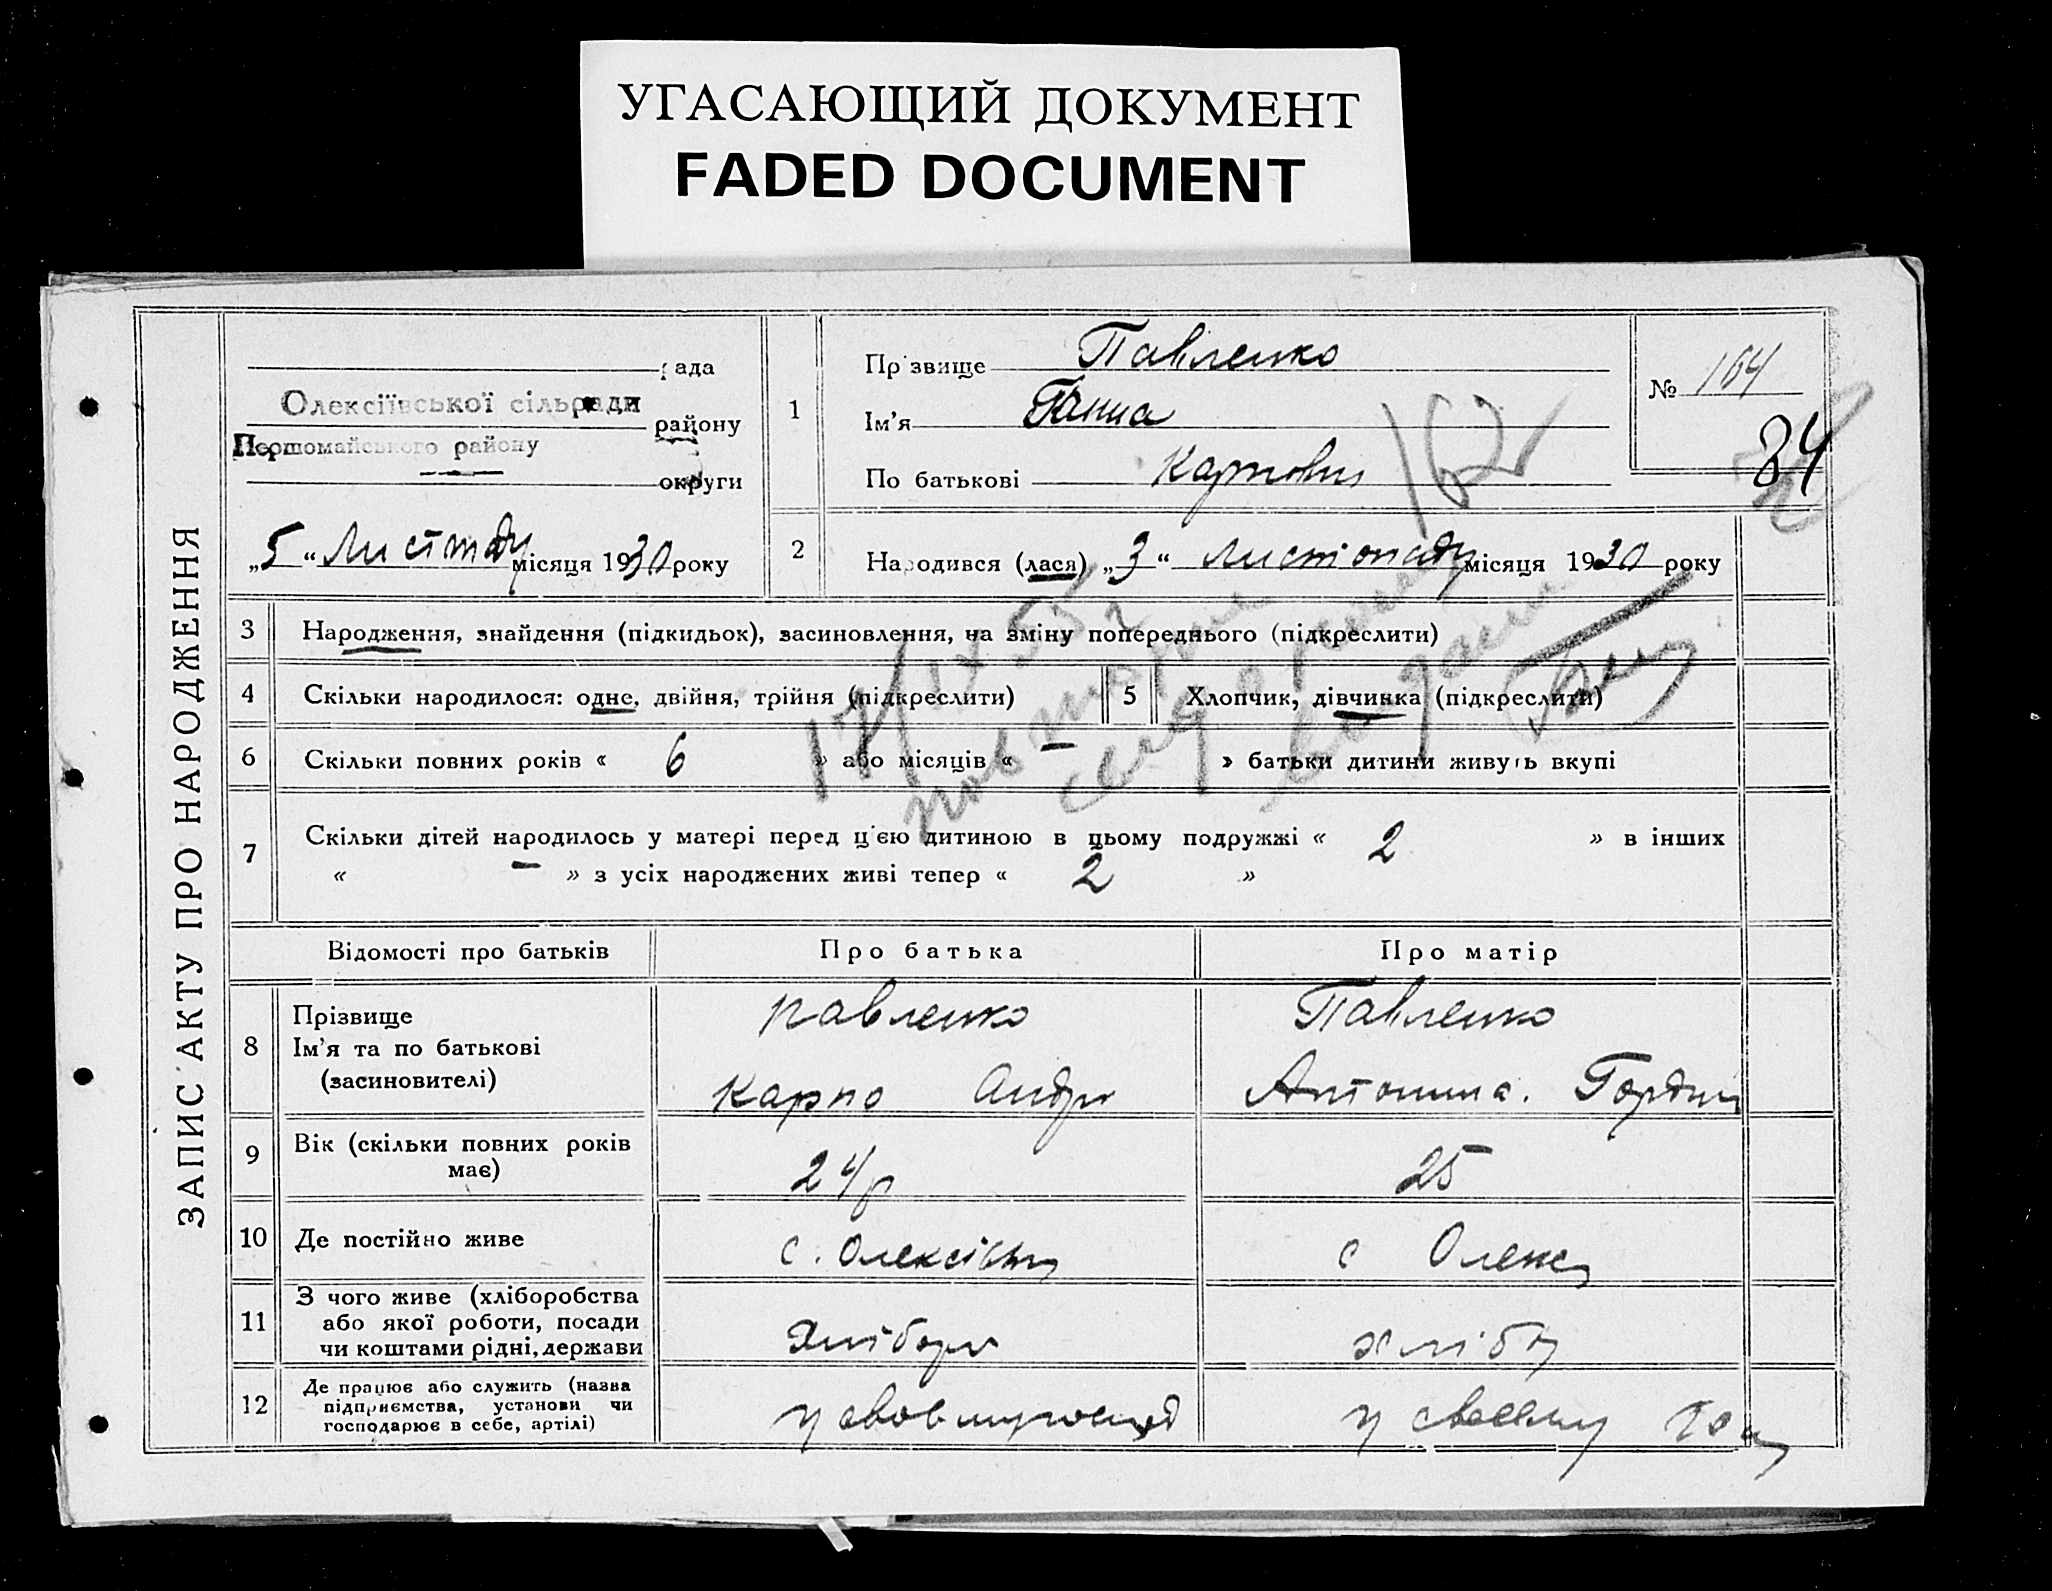 УГАСАЮЩИЙ ДОКУМЕНТ
FADED DOCUMENT
ЗАПИС АКТУ ПРО НАРОДЖЕННЯ
рада
Олексіївської сільради
району
Першомайського району
округи
„5“ Листпаду місяця 1930 року
1
Прізвище Павленко
Ім'я Ганна
По батькові Карповн
№ 164
162
84
2
Народився (лася) „3“ Листопаду місяця 1930 року
3
Народження, знайдення (підкидьок), засиновлення, на зміну попереднього (підкреслити)
4
Скільки народилося: одне, двійня, трійня (підкреслити)
5
Хлопчик, дівчинка (підкреслити)
6
Скільки повних років « 6 » або місяців « — » батьки дитини живуть вкупі
17/IX 55 г
повторне
7
Скільки дітей народилось у матері перед ц'єю дитиною в цьому подружжі « 2 » в інших
« — » з усіх народжених живі тепер « 2 »
Відомості про батьків
Про батька
Про матір
8
Прізвище
Ім'я та по батькові
(засиновителі)
Павленко
Карпо Андр
Павленко
Антонина. Горди
9
Вік (скільки повних років
має)
24 р
25
10
Де постійно живе
с. Олексіївк
с Олекс
11
З чого живе (хліборобства
або якої роботи, посади
чи коштами рідні, держави
хлібор
хліб
12
Де працює або служить (назва
підприємства, установи чи
господарює в себе, артілі)
у своємугоспод
у своєму гос